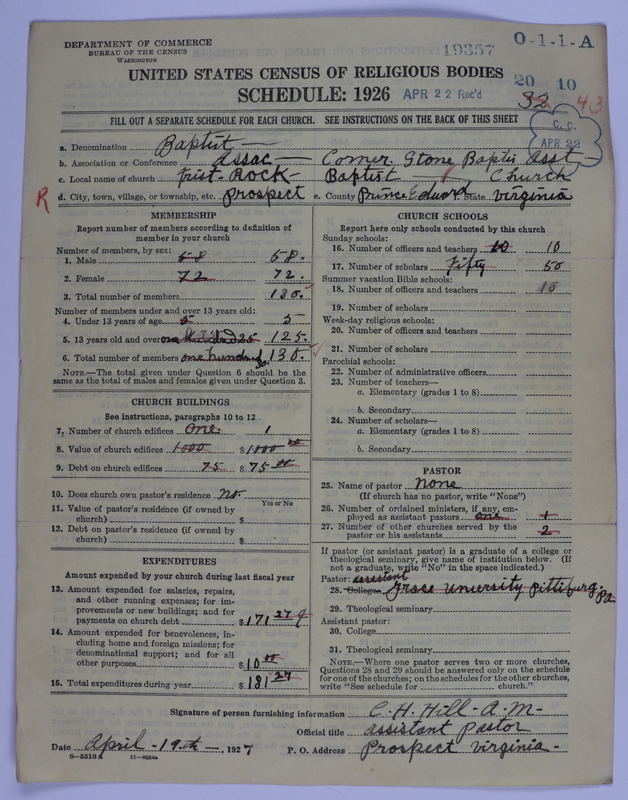 DEPARTMENT OF COMMERCE
BUREAU OF THE CENSUS
WASHINGTON
19357
O-1-1-A
UNITED STATES CENSUS OF RELIGIOUS BODIES
20 10
SCHEDULE: 1926
APR 22 Rec'd
32 43
FILL OUT A SEPARATE SCHEDULE FOR EACH CHURCH. SEE INSTRUCTIONS ON THE BACK OF THIS SHEET
C. C.
APR 22
a. Denomination Baptist
b. Association or Conference assac Corner Stone Baptis Asst
c. Local name of church first Rock Baptist Church
R d. City, town, village, or township, etc. Prospect e. County Prince Eduard f. State Virginia
MEMBERSHIP
Report number of members according to definition of
member in your church
Number of members, by sex:
1. Male 58 58.
2. Female 72 72.
3. Total number of members 130.
Number of members under and over 13 years old:
4. Under 13 years of age 5 5
5. 13 years old and over one hundred 25 125.
6. Total number of members one hundred 30 130.
NOTE.—The total given under Question 6 should be the
same as the total of males and females given under Question 3.
CHURCH BUILDINGS
See instructions, paragraphs 10 to 12
7. Number of church edifices One. 1
8. Value of church edifices 1000 $1000 00
9. Debt on church edifices 75 $75 00
10. Does church own pastor's residence No.
Yes or No
11. Value of pastor's residence (if owned by
church) $
12. Debt on pastor's residence (if owned by
church) $
EXPENDITURES
Amount expended by your church during last fiscal year
13. Amount expended for salaries, repairs,
and other running expenses; for im-
provements or new buildings; and for
payments on church debt $171 27
14. Amount expended for benevolences, in-
cluding home and foreign missions; for
denominational support; and for all
other purposes $10 00
15. Total expenditures during year $181 27
CHURCH SCHOOLS
Report here only schools conducted by this church
Sunday schools:
16. Number of officers and teachers 10 10
17. Number of scholars fifty 50
Summer vacation Bible schools:
18. Number of officers and teachers 10
19. Number of scholars
Week-day religious schools:
20. Number of officers and teachers
21. Number of scholars
Parochial schools:
22. Number of administrative officers
23. Number of teachers—
a. Elementary (grades 1 to 8)
b. Secondary
24. Number of scholars—
a. Elementary (grades 1 to 8)
b. Secondary
PASTOR
25. Name of pastor None
(If church has no pastor, write "None")
26. Number of ordained ministers, if any, em-
ployed as assistant pastors one 1
27. Number of other churches served by the
pastor or his assistants 2
If pastor (or assistant pastor) is a graduate of a college or
theological seminary, give name of institution below. (If
not a graduate, write "No" in the space indicated.)
Pastor: assistant
28. College Grace University Pittsburg Pa
29. Theological seminary
Assistant pastor:
30. College
31. Theological seminary
NOTE.—Where one pastor serves two or more churches,
Questions 28 and 29 should be answered only on the schedule
for one of the churches; on the schedules for the other churches,
write "See schedule for church."
Signature of person furnishing information C. H. Hill - A. M -
Official title assistant Pastor
Date April - 19th -, 1927 P. O. Address Prospect Virginia -
8-5518a 11-9664a